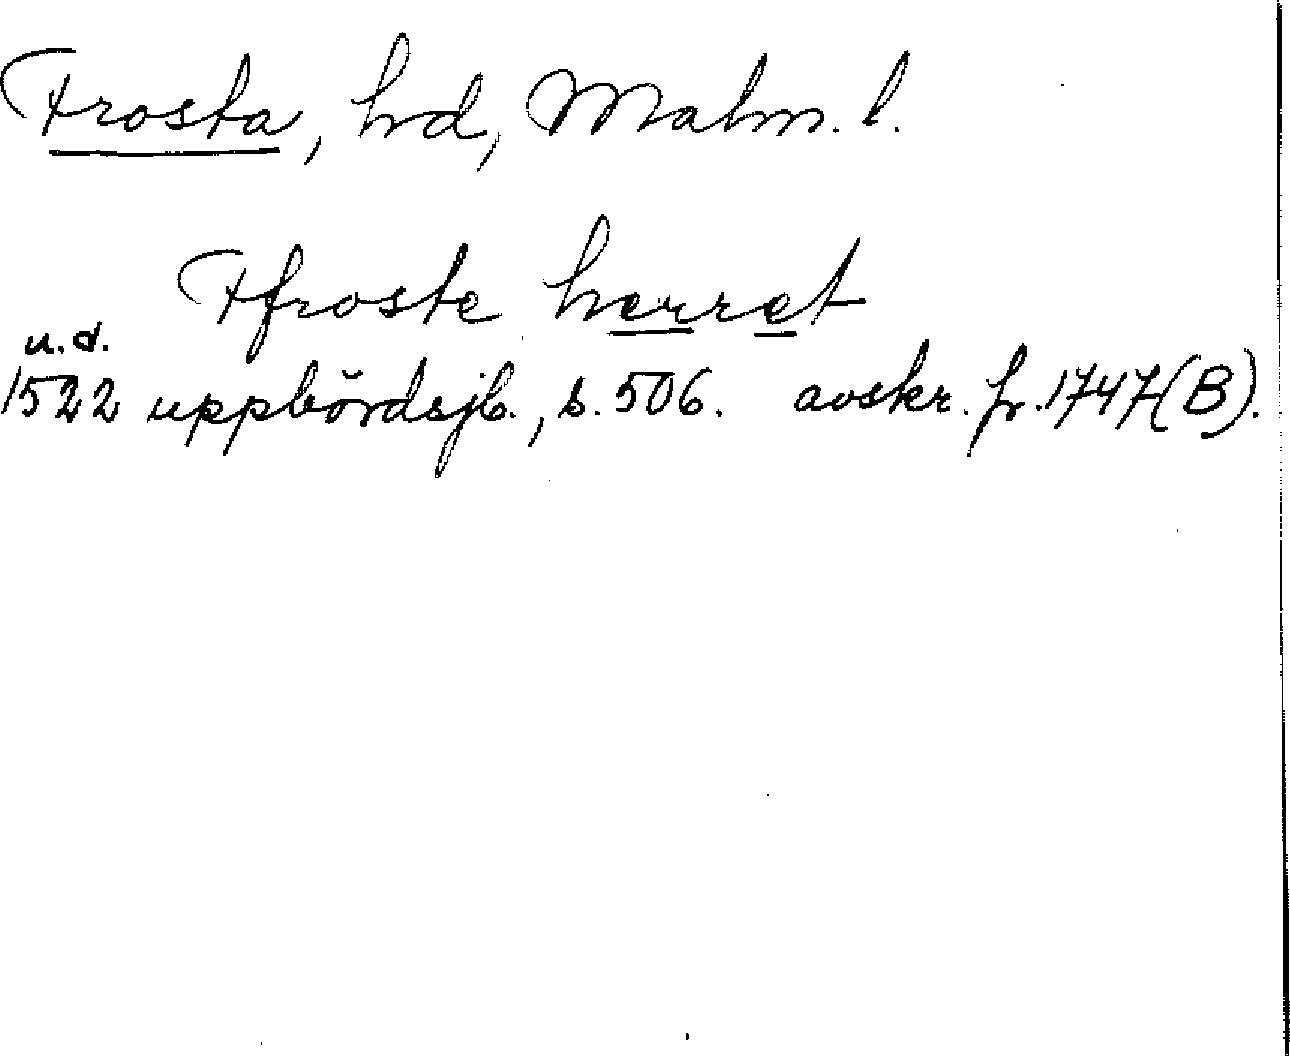 Frosta, hd, Malm. l.
Ffroste herret
u. d.
1522 uppbördsjb., s. 506. avskr. fr. 1747(B).